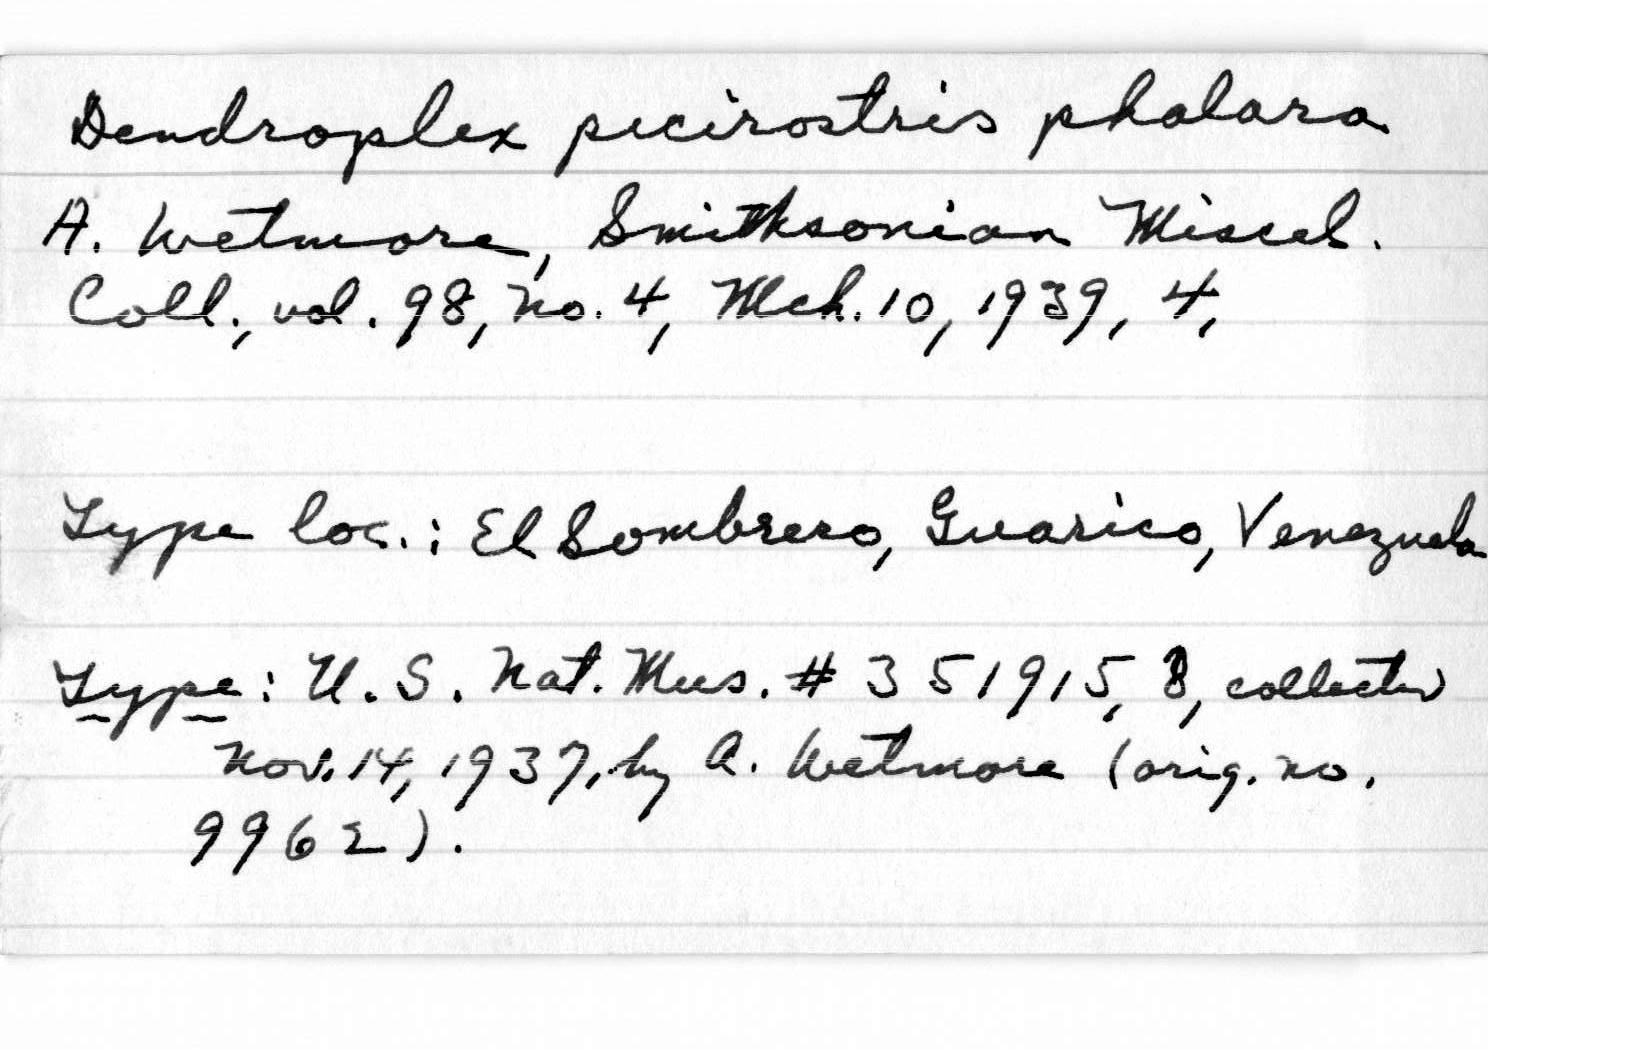 Dendroplex picirostris phalara
A. Wetmore, Smithsonian Miscel.
Coll., vol. 98, no. 4, Mch. 10, 1939, 4,
Type loc.: El Sombrero, Guarico, Venezuela
Type: U. S. Nat. Mus. # 351915, ♂, collected
Nov. 14, 1937, by A. Wetmore (orig. no.
9962).